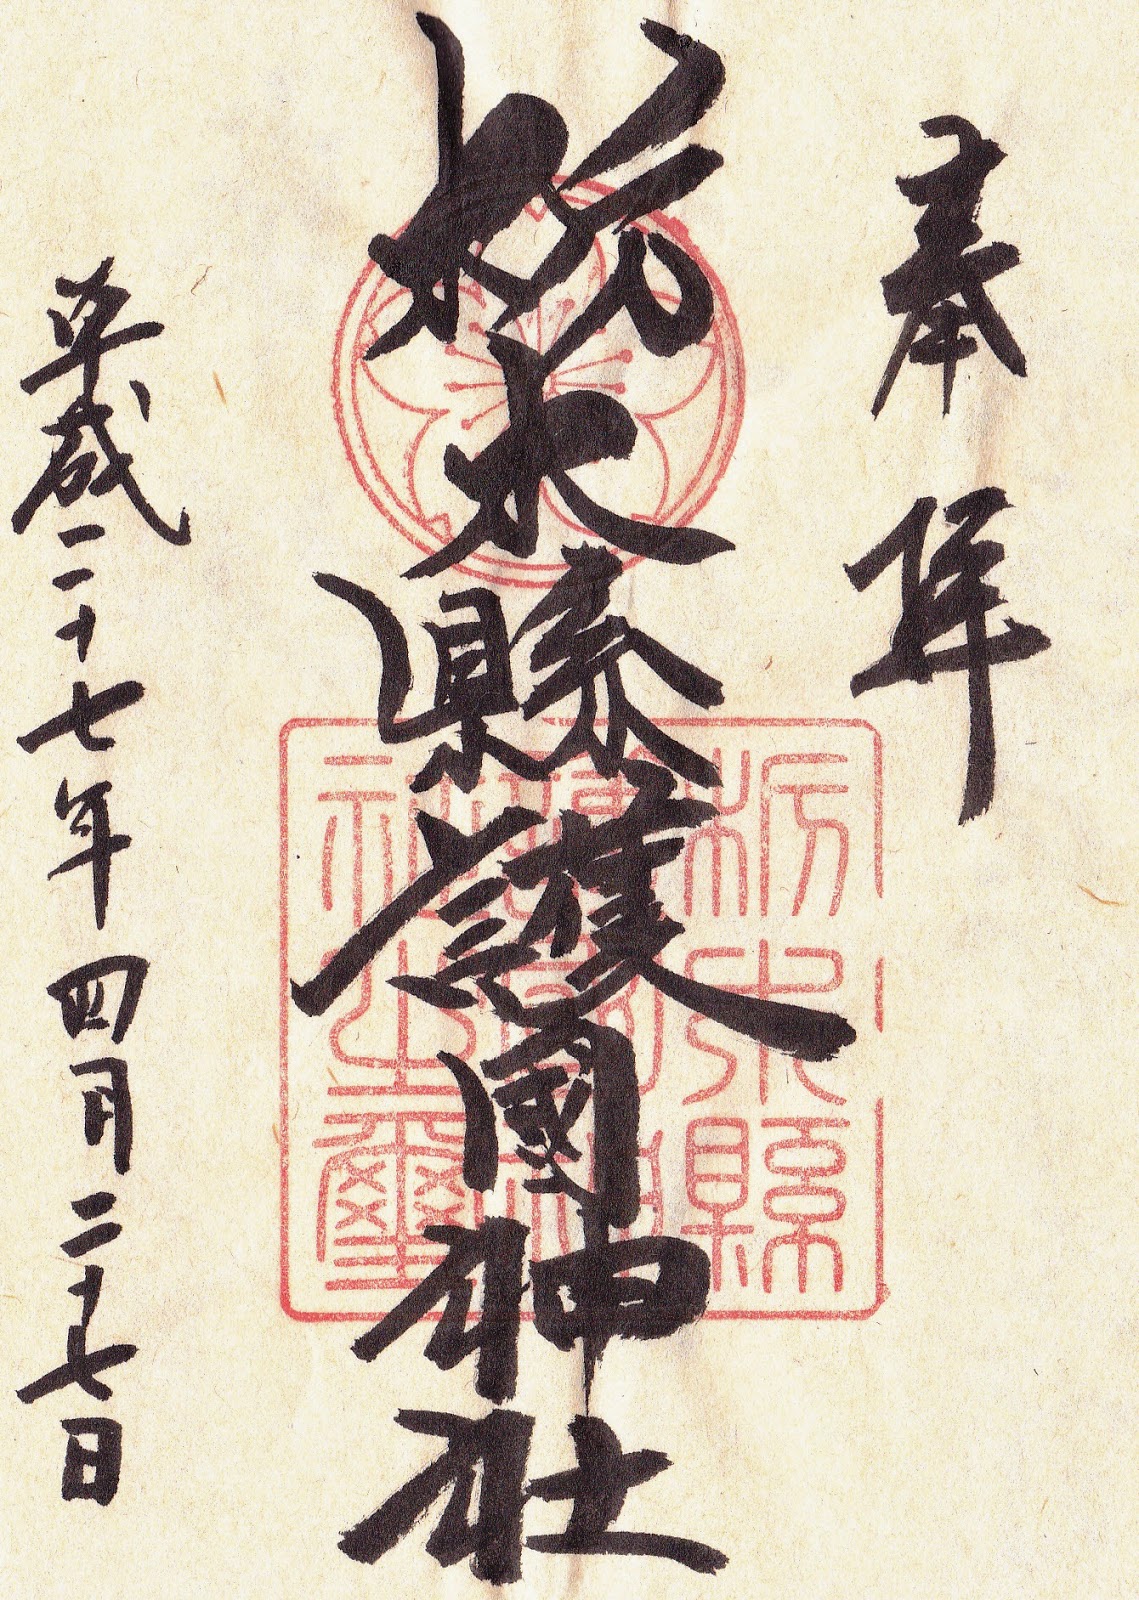 奉拝
栃木縣護國神社
栃木縣
護國神
社之璽
平成二十七年四月二十七日